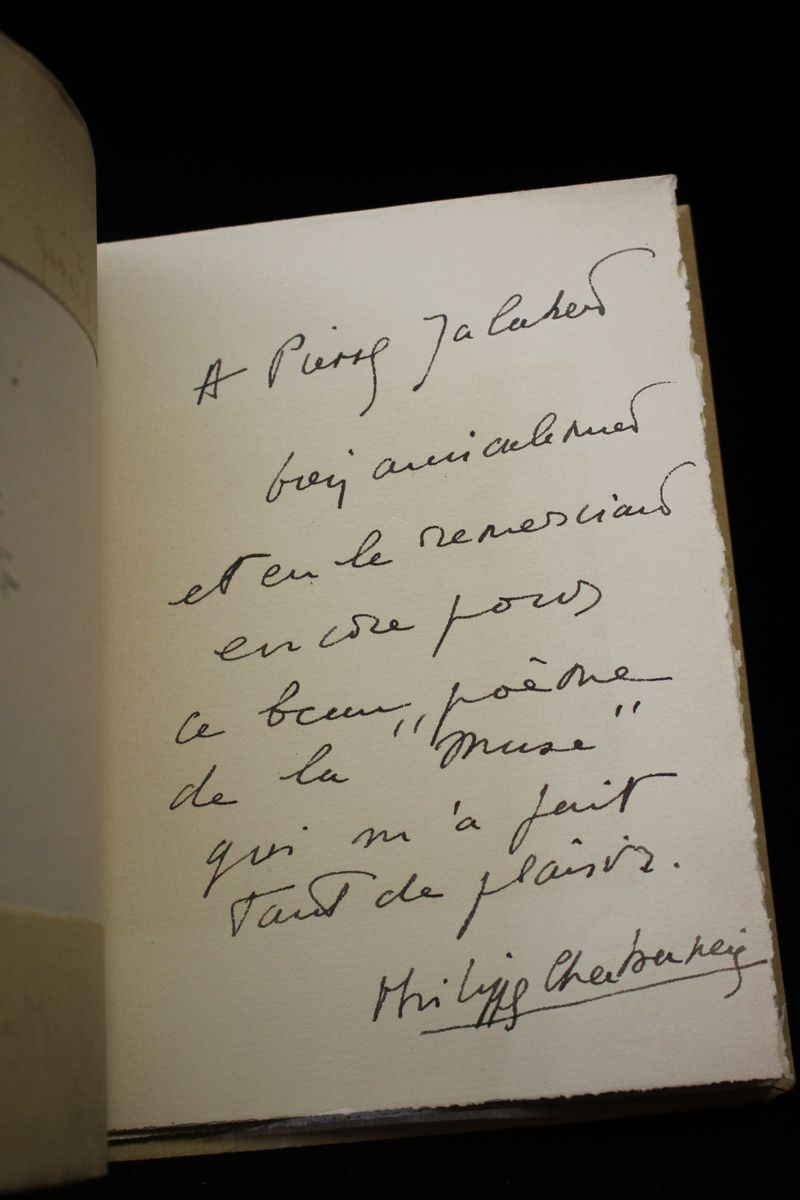 A Pierre Jalabert
bien amicalement
et en le remerciant
encore pour
ce beau "poème
de la Muse"
qui m'a fait
tant de plaisir.
Philippe Chabaneix